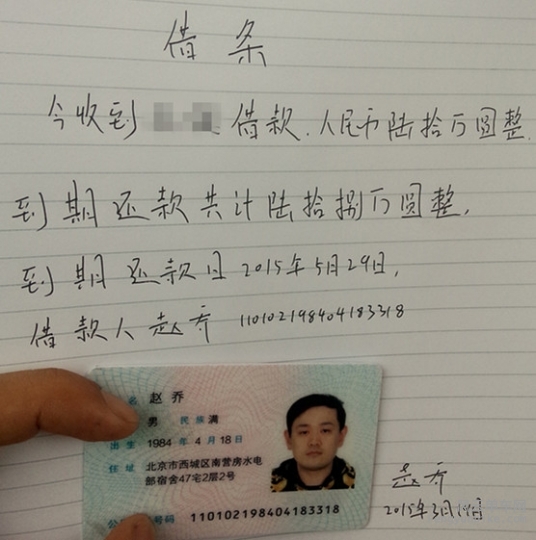 借条
今收到 借款.人民币陆拾万圆整.
到期还款共计陆拾捌万圆整,
到期还款日2015年5月29日,
借款人赵乔 110102198404183318
名 赵乔
男 民族 满
出生 1984年4月18日
住址 北京市西城区南营房水电
部宿舍47宅2层2号
号码 110102198404183318
赵乔
2015年3月